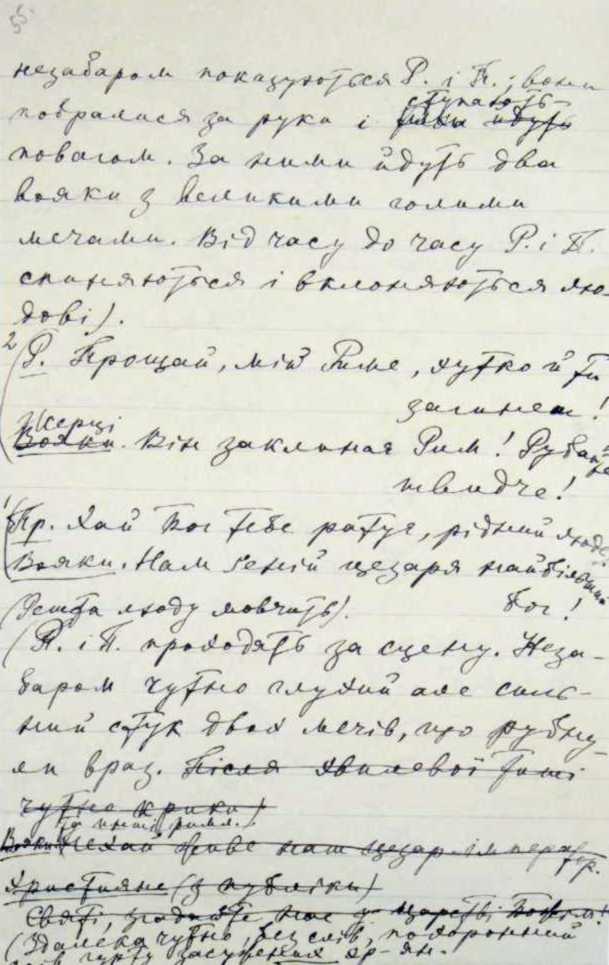 55.
незабаром показуються Р. і П.; вони
ступають
побралися за руки і йдуть
поволом. За ними йдуть два
вояки з великими голими
мечами. Від часу до часу Р. і П.
спиняються і вклоняються лю-
дові).
2
Р. Прощай, мій Риме, хутко й ти
загинеш!
Жерці
Вояки. Він заклинає Рим! Рубайте
швидче!
1
Пр. Хай Бог тебе ратує, рідний люде
Вояки. Нам геній цезаря найбільший
Бог!
(Решта люду мовчить).
(Р. і П. проходять за сцену. Неза-
баром чутно глухий але силь-
ний стук двох мечів, що рубну-
ли враз. Після хвилевої тиші
чутно крики)
та инші римл.)
Вояки Нехай живе наш цезар імператор.
Християне (з публіки)
Святі, згадайте нас у царстві Божім!
(Здалека чутно, без слів, похоронний
спів гурту засужених хр-ян.